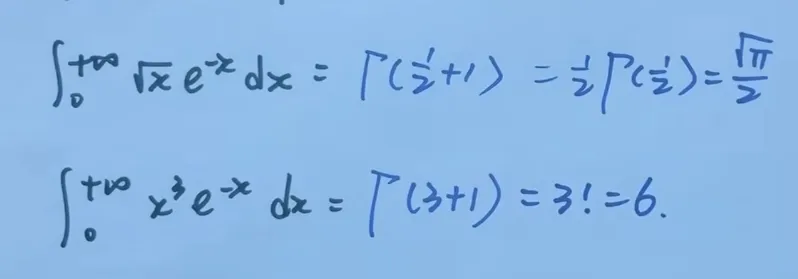 ∫₀^{+∞} √x e^{-x} dx = Γ(1/2+1) = 1/2 Γ(1/2) = √π/2
∫₀^{+∞} x³ e^{-x} dx = Γ(3+1) = 3! = 6.